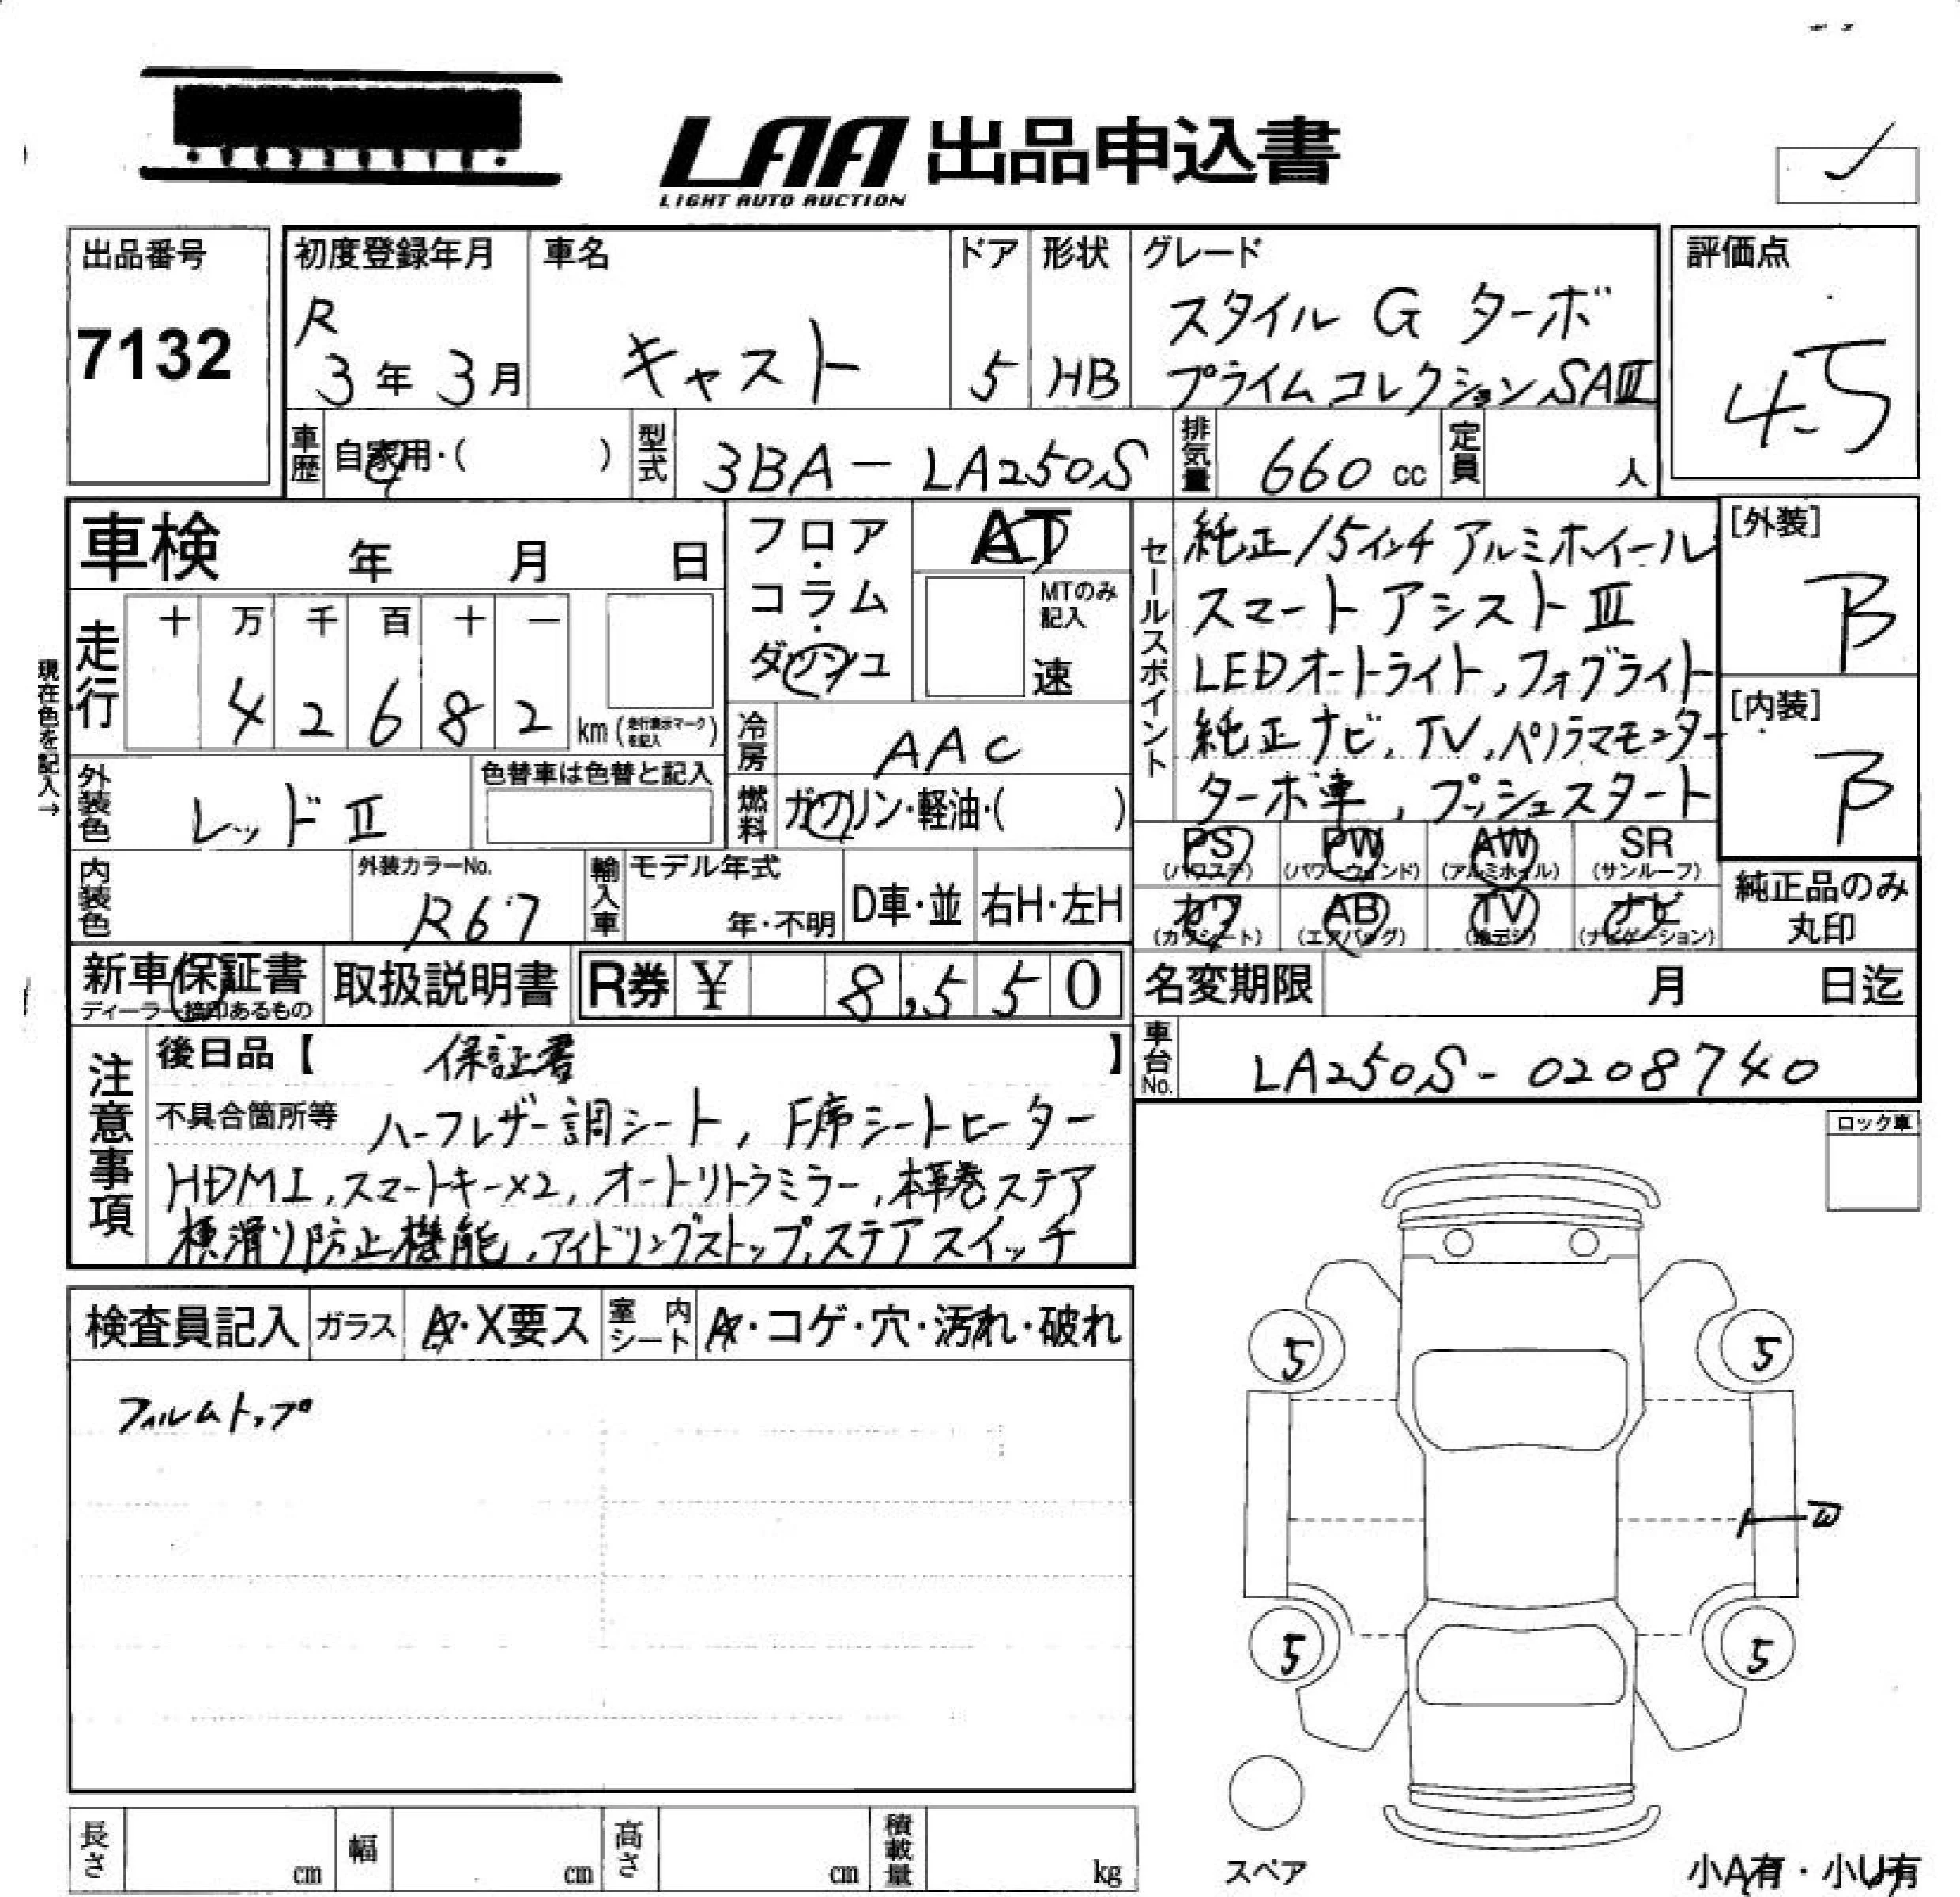 LAA 出品申込書
LIGHT AUTO AUCTION
出品番号
7132
初度登録年月
R
3年 3月
車名
キャスト
ドア
5
形状
HB
グレード
スタイル G ターボ
プライムコレクションSAⅢ
評価点
4.5
車歴 自家用・( )
型式 3BA-LA250S
排気量 660cc
定員 人
車検 年 月 日
現在色を記入→
走行
十 万 千 百 十 一
4 2 6 8 2 km (走行表示マークを記入)
フロア・
コラム・
ダッシュ
AT
MTのみ記入
速
冷房 AAC
燃料 ガソリン・軽油・( )
外装色 レッドⅡ
色替車は色替と記入
内装色
外装カラーNo.
R67
輸入車 モデル年式
年・不明
D車・並 右H・左H
セールスポイント
純正15インチアルミホイール
スマートアシストⅢ
LEDオートライト,フォグライト
純正ナビ,TV,パノラマモニター
ターボ車,プッシュスタート
[外装]
B
[内装]
B
PS (パワステ)
PW (パワーウィンド)
AW (アルミホイル)
SR (サンルーフ)
カワ (カワシート)
AB (エアバッグ)
TV (地デジ)
ナビ (ナビゲーション)
純正品のみ
丸印
新車保証書
ディーラー捺印あるもの
取扱説明書
R券 ¥ 8,550
名変期限 月 日迄
車台No. LA250S-0208740
注意事項
後日品【 保証書 】
不具合箇所等 ハーフレザー調シート,F席シートヒーター
HDMI,スマートキー×2,オートリトラミラー,本革巻ステア
横滑り防止機能,アイドリングストップ,ステアスイッチ
ロック車
検査員記入 ガラス A・X要ス 室内シート A・コゲ・穴・汚れ・破れ
フィルムトップ
5
5
5
5
スペア
小A有・小U有
長さ cm 幅 cm 高さ cm 積載量 kg